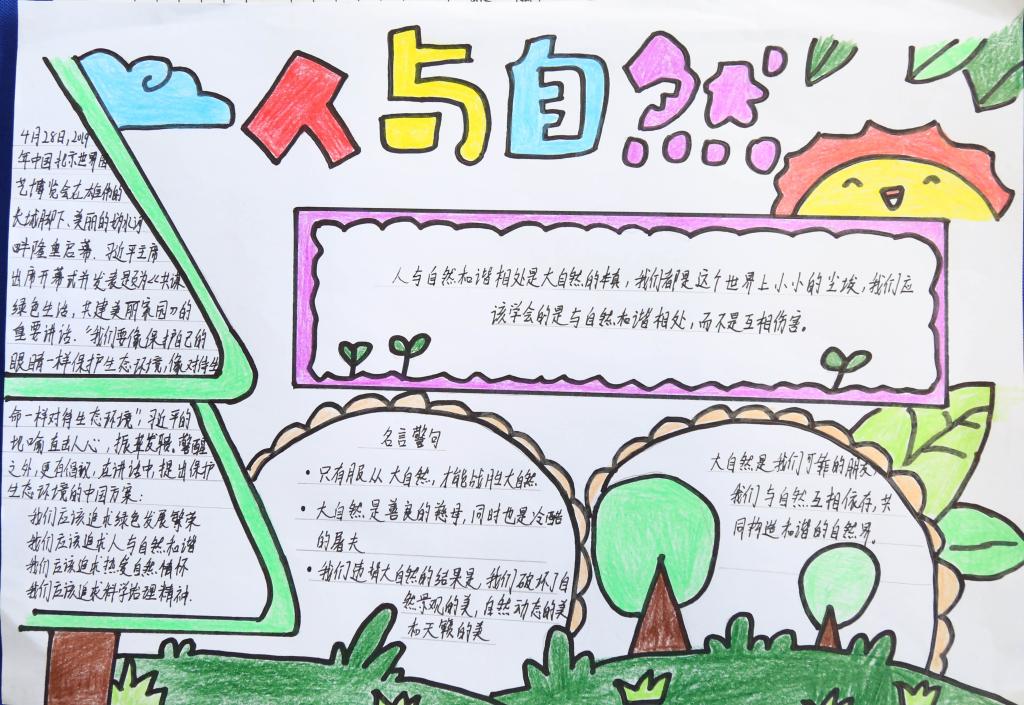 人与自然
4月28日,2019
年中国北京世界园
艺博览会在雄伟的
长城脚下、美丽的妫水河
畔隆重启幕.习近平主席
出席开幕式并发表题为《共谋
绿色生活,共建美丽家园》的
重要讲话."我们要像保护自己的
眼睛一样保护生态环境,像对待生
命一样对待生态环境";习近平的
比喻直击人心,振聋发聩。警醒
之外,更有倡议,在讲话中提出保护
生态环境的中国方案:
我们应该追求绿色发展繁荣
我们应该追求人与自然和谐
我们应该追求热爱自然情怀
我们应该追求科学治理精神.
人与自然和谐相处是大自然的本真,我们都是这个世界上小小的尘埃,我们应
该学会的是与自然和谐相处,而不是互相伤害。
名言警句
·只有服从大自然,才能战胜大自然.
·大自然是善良的慈母,同时也是冷酷
的屠夫
·我们边请大自然的结果是,我们破坏了自
然景观的美,自然动态的美
和天籁的美
大自然是我们可靠的朋友,
我们与自然互相依存,共
同构造和谐的自然界.